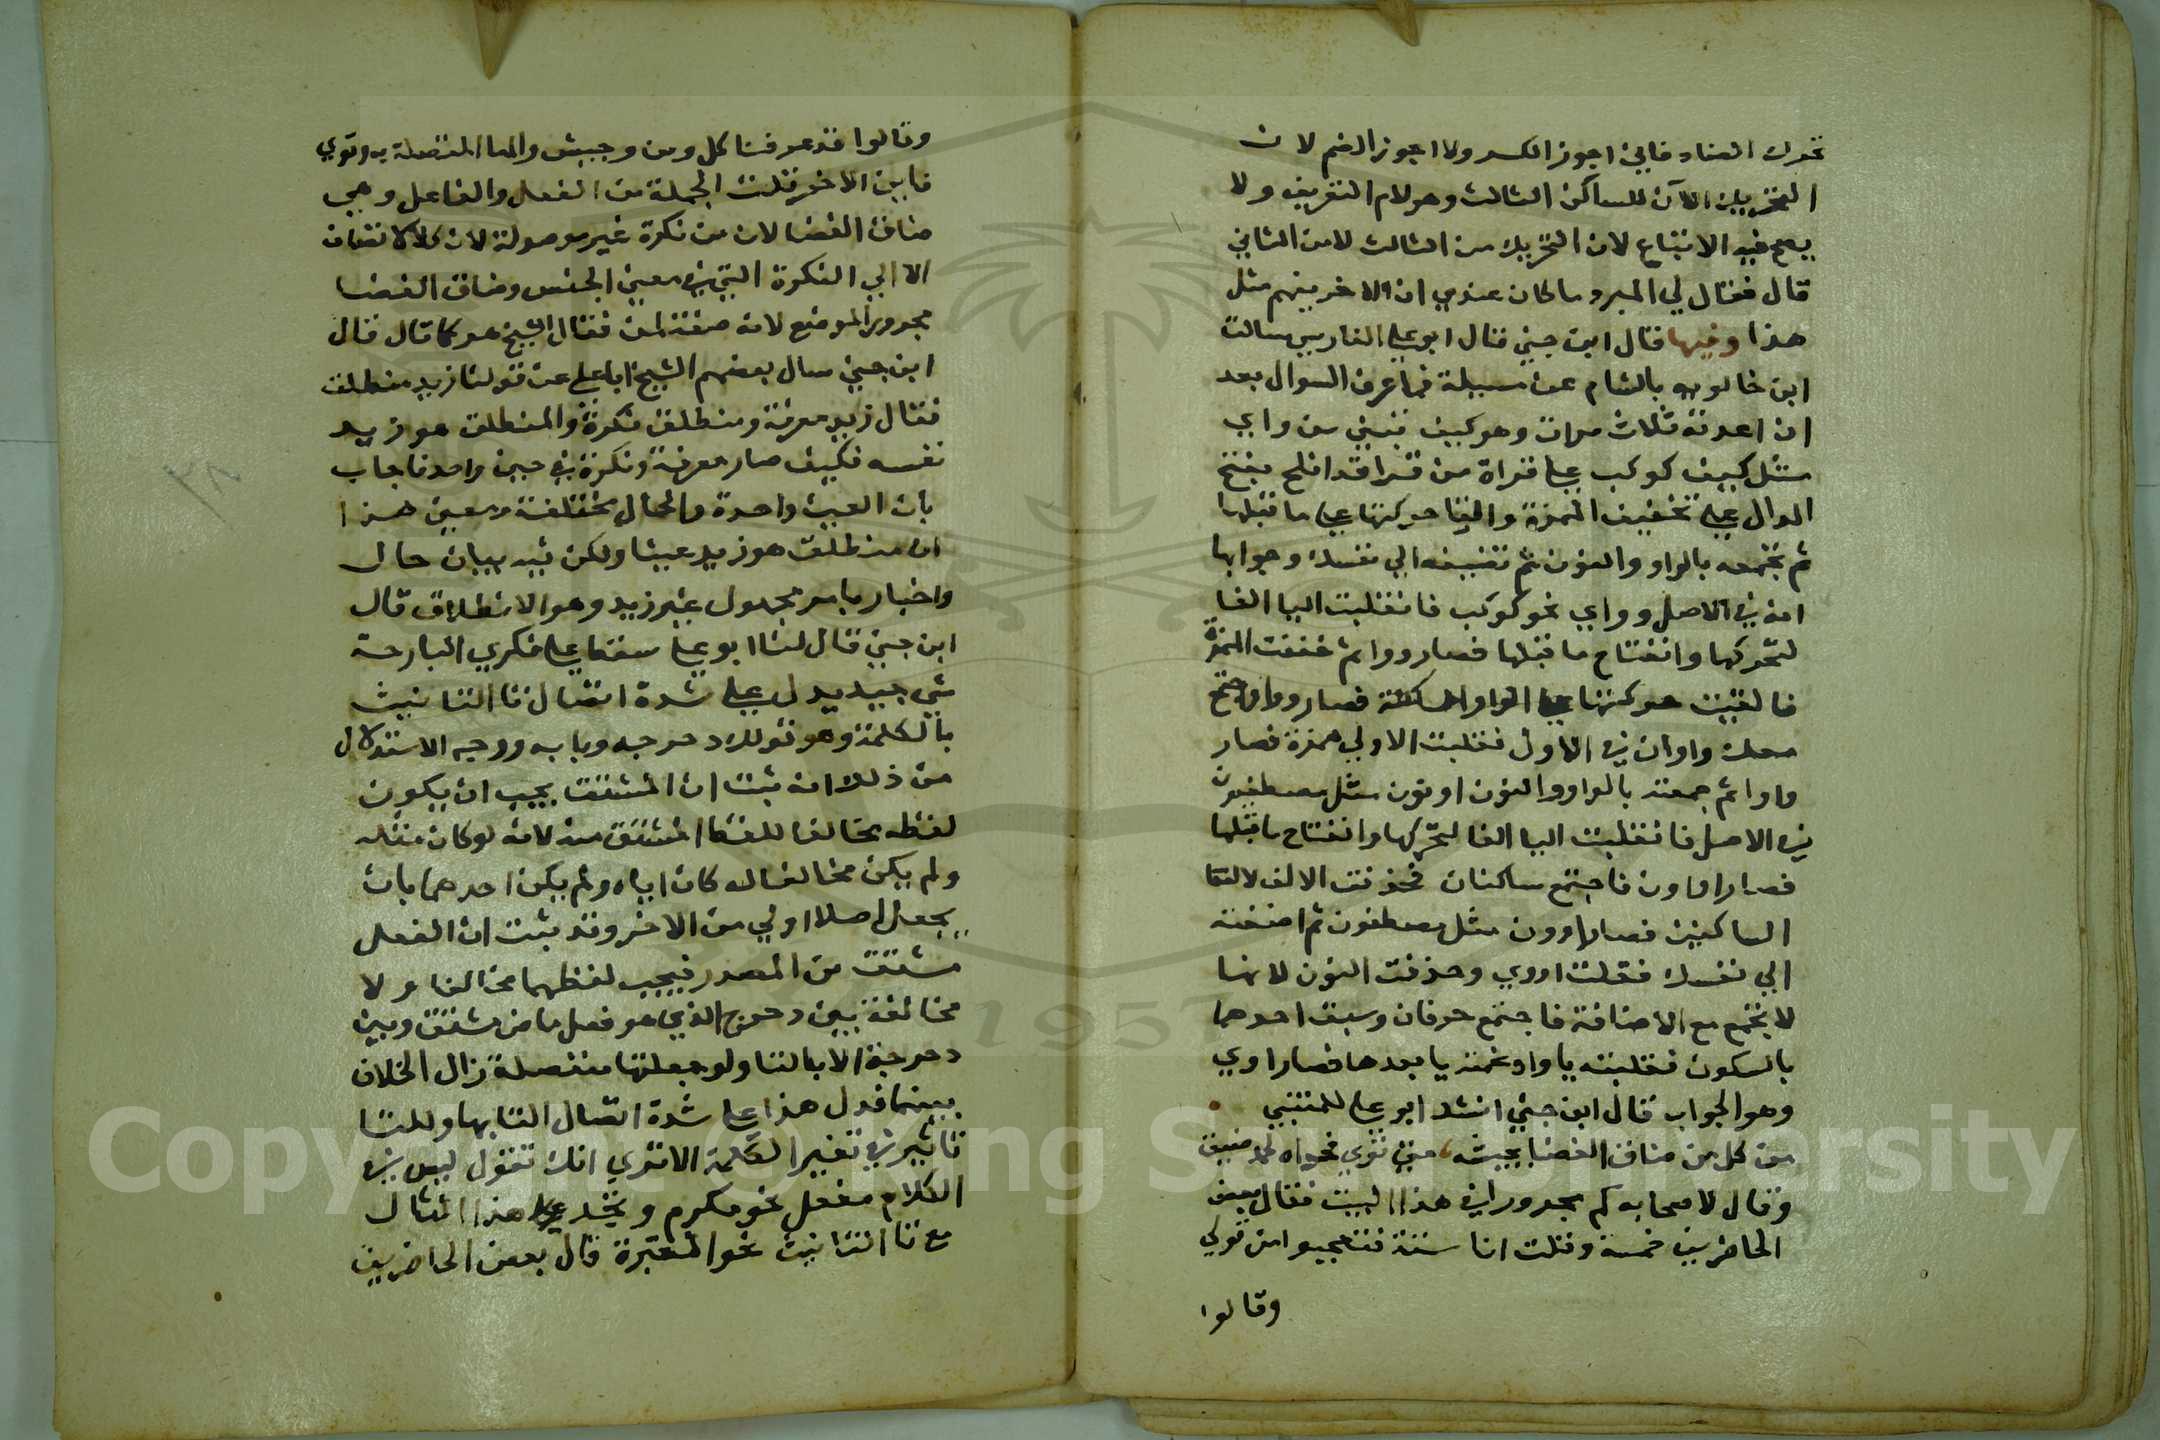 تحرك الضاد فاني اجوز الكسر ولا اجوز الضم لان
التحريك الآن للساكن الثالث وهو لام التعريف ولا
يصح فيه الاتباع لان التحريك من الثالث لا من الثاني
قال فقال لي المبرد ما كان عندي ان الاخر يفهم مثل
هذا وفيها قال ابن جني قال ابو علي الفارسي سالت
ابن خالويه بالشام عن مسيلة فما عرف السوال بعد
ان اعدته ثلاث مرات وهو كيف تبني من واي
مثل كوكب علي قراة من قرا قد افلح بفتح
الدال علي تخفيف الهمزة والقا حركتها علي ما قبلها
ثم تجمعه بالواو والنون ثم تضيفه الي نفسك وجوابها
انه في الاصل وواي نحو كوكب فانقلبت اليا الفا
لتحركها وانفتاح ما قبلها فصار ووا ثم خففت الهمزة
فالقيت حركتها علي الواو الساكنة فصار ووا واجتمع
معك واوان في الاول فقلبت الاولي همزة فصار
واوا ثم جمعته بالواو والنون اوون مثل مصطفون
في الاصل فانقلبت اليا الفا لتحركها وانفتاح ما قبلها
فصار اواون فاجتمع ساكنان فحذفت الالف لالتقا
الساكنين فصار اوون مثل مصطفون ثم اضفته
الي نفسك فقلت اووي وحذفت النون لانها
لا تجتمع مع الاضافة فاجتمع حرفان وسبق احدهما
بالسكون فقلبته يا وادغمته يا بعدها فصار اوي
وهو الجواب قال ابن جني انشد ابو علي للمتنبي
من كل من ضاق الفضا بجيشه، متي ثوي فحواه لحد ضيق
وقال لاصحابه كم مجرورا في هذا البيت فقال بعض
الحاضرين خمسة وقلت انا ستة فتعجبوا من قولي
وقالوا
وقالوا قد عرفنا كل ومن وجيش والها المتصلة به وثوي
فاين الاخر قلت الجملة من الفعل والفاعل وهي
ضاق الفضا لان من نكرة غير موصولة لان كلا لا تضاف
الا الي النكرة التي في معني الجنس وضاق الفضا
مجرور الموضع لانه صفة لمن فقال الشيخ هو كما قال قال
ابن جني سال بعضهم الشيخ ابا علي عن قولنا زيد منطلق
فقال زيد معرفة ومنطلق نكرة والمنطلق هو زيد
نفسه فكيف صار معرفة ونكرة في حين واحد فاجاب
بان العين واحدة والحال مختلفة ومعني هذا
ان منطلق هو زيد عينا ولكن فيه بيان حال
واخبار بامر مجهول غير زيد وهو الانطلاق قال
ابن جني قال لنا ابو علي سقط علي فكري البارحة
شي جيد يدل علي شدة اتصال تا التانيث
بالكلمة وهو قولك دحرجه وبابه ووجه الاستدلال
من ذلك انه ثبت ان المشتق يجب ان يكون
لفظه مخالفا للفظ المشتق منه لانه لو كان مثله
ولم يكن مخالفا له كان اياه ولم يكن احدهما بان
يجعل اصلا اولي من الاخر وقد ثبت ان الفعل
مشتق من المصدر فيجب لفظهما مخالفا ولا
مخالفة بين دحرج الذي هو فعل ماض مشتق وبين
دحرجة الا بالتا ولو جعلتها منفصلة زال الخلاف
بينهما فدل هذا علي شدة اتصال التا بها وللتا
تاثير في تغيير الكلمة الا تري انك تقول ليس في
الكلام مفعل نحو مكرم وتجد علي هذا المثال
مع تا التانيث نحو المقبرة قال بعض الحاضرين
Copyright © King Saud University
1957